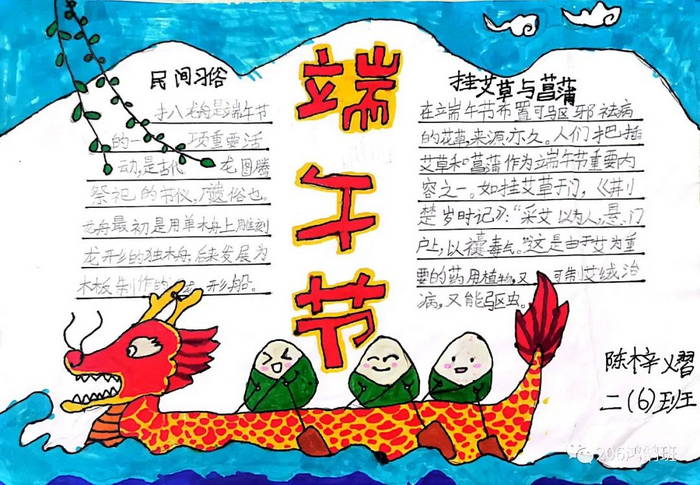 端午节
民间习俗
扒龙舟是端午节
的一 项重要活
动,是古代 龙图腾
祭祀的节仪,遗俗也.
龙舟最初是用单木舟上雕刻
龙形的独木舟,后来发展为
木板制作的 形船。
挂艾草与菖蒲
在端午节布置可驱邪祛病
的花草,来源亦久。人们把插
艾草和菖蒲作为端午节重要内
容之一。如挂艾草于门,《荆
楚岁时记》:“采艾以为人,悬门
户上,以禳毒气。”这是由于艾为重
要的药用植物,又可制艾绒治
病,又能驱虫。
陈梓熠
二(6)班